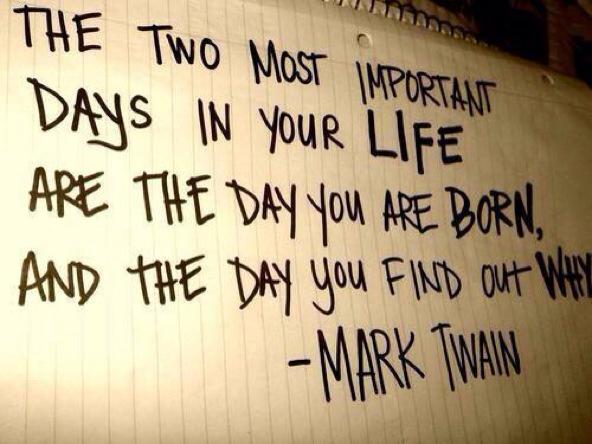 THE TWO MOST IMPORTANT
DAYS IN YOUR LIFE
ARE THE DAY YOU ARE BORN,
AND THE DAY YOU FIND OUT WHY
-MARK TWAIN